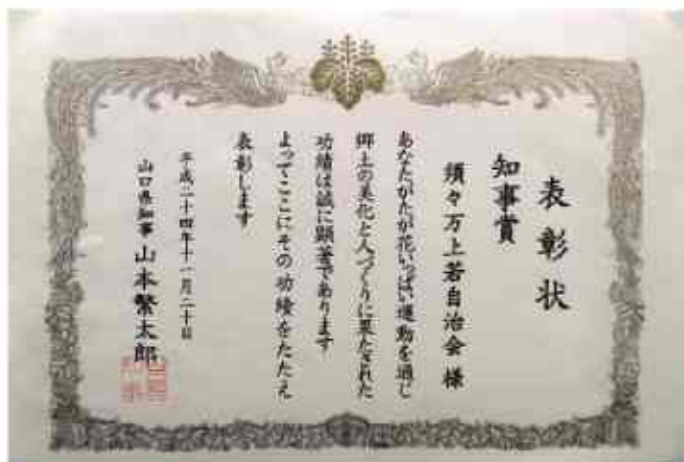 表彰状
知事賞
須々万上若自治会 様
あなたがたが花いっぱい運動を通じ
郷土の美化と人づくりに果たされた
功績は誠に顕著であります
よってここにその功績をたたえ
表彰します
平成二十四年十一月二十日
山口県知事 山本繁太郎